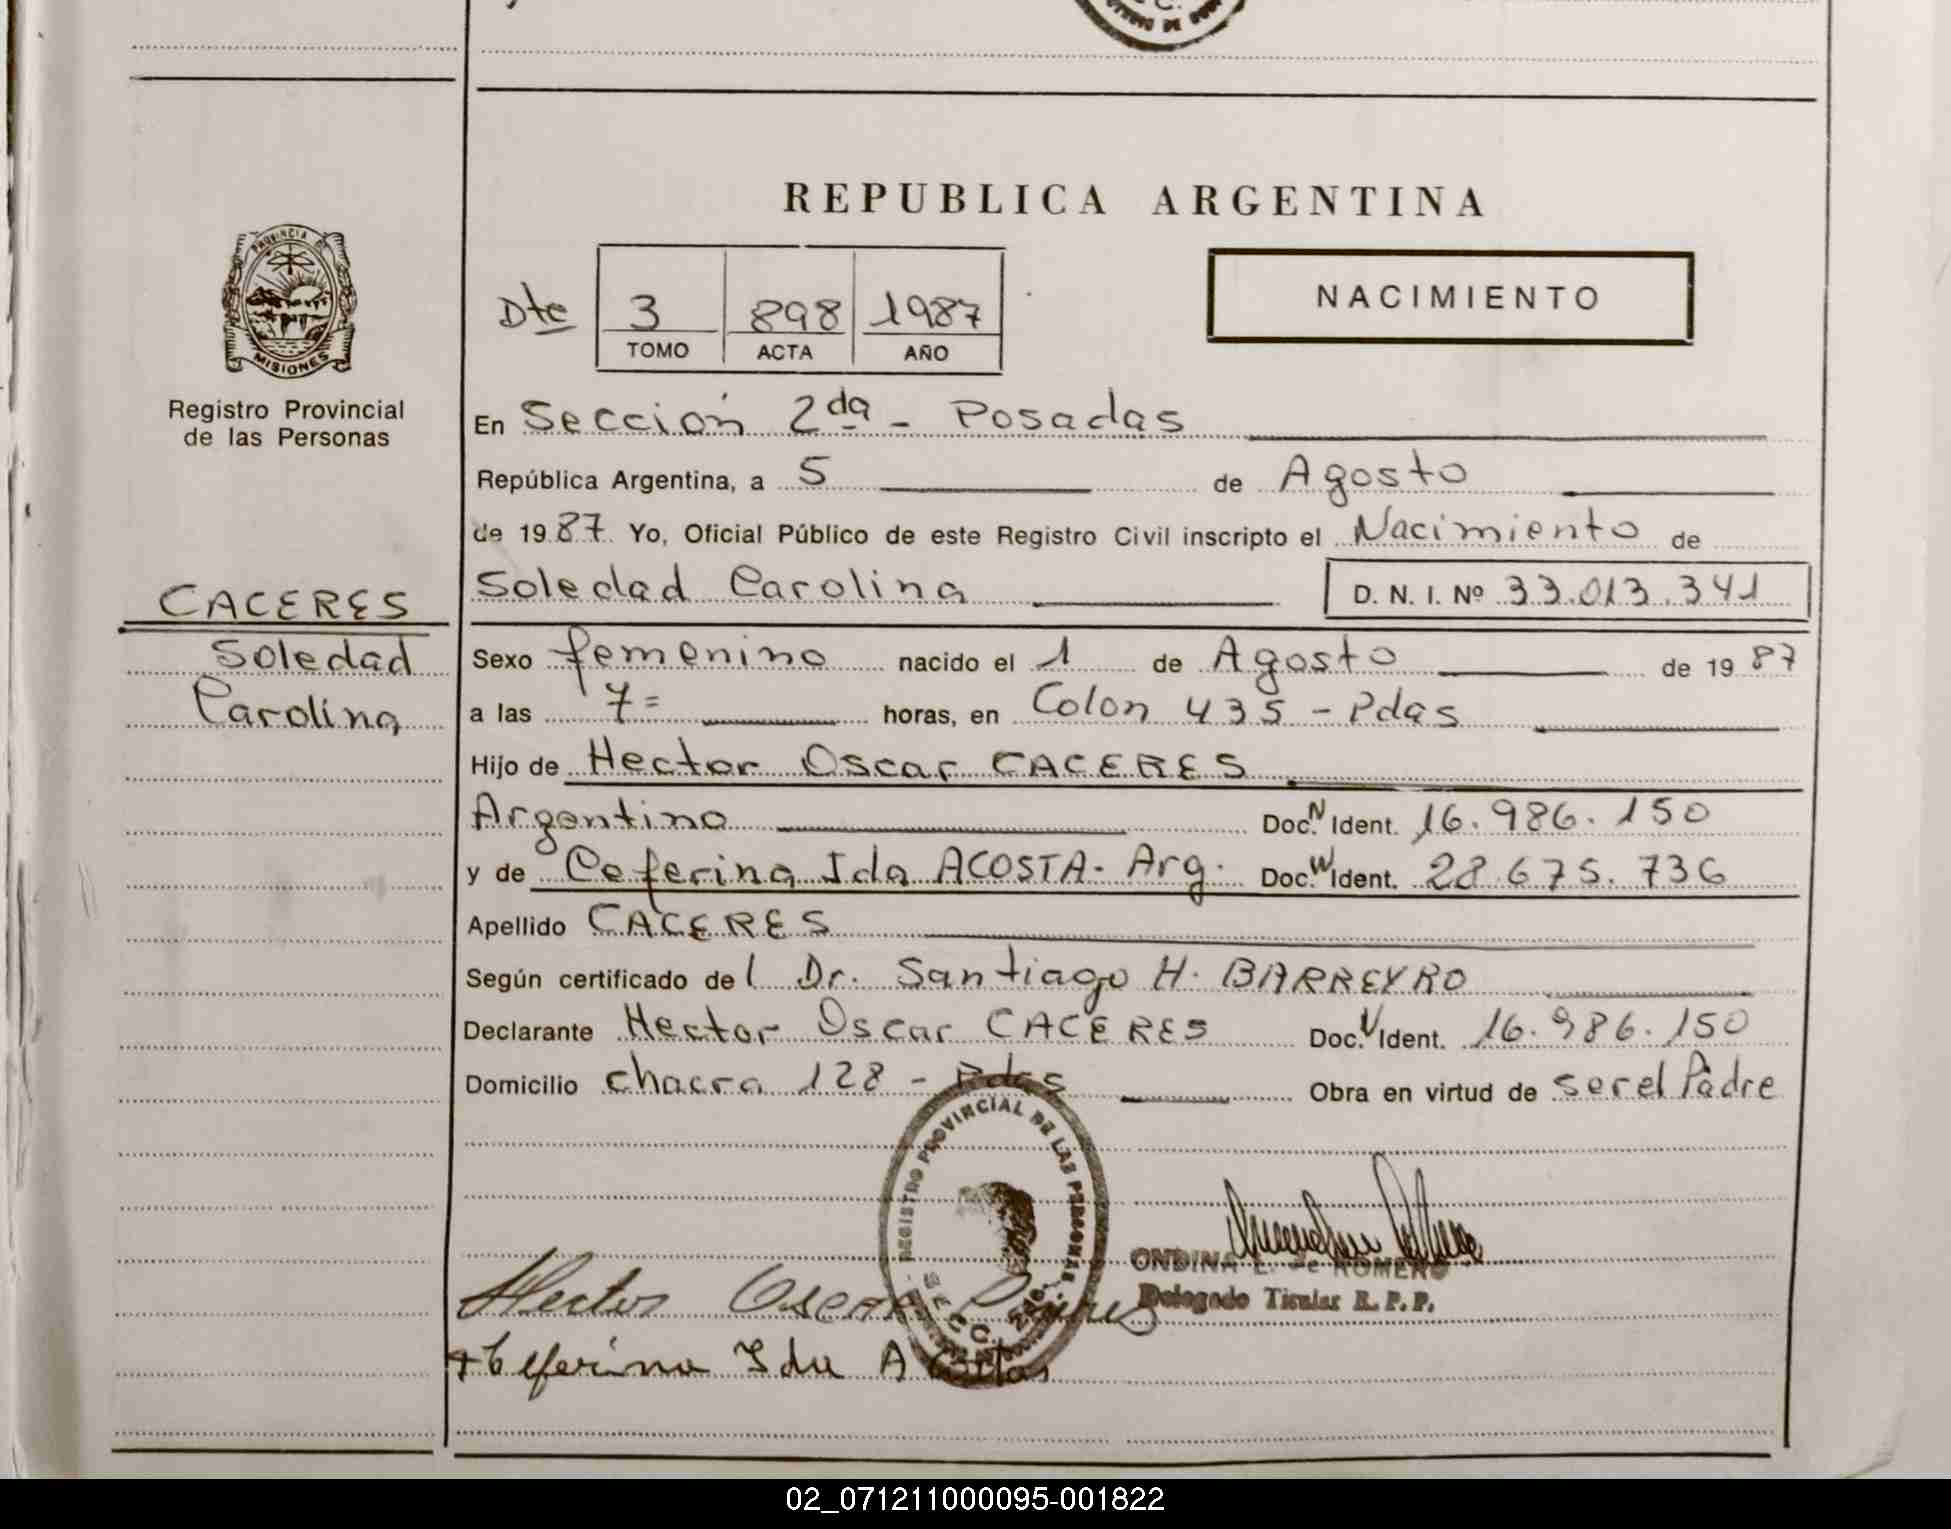 REPUBLICA ARGENTINA
PROVINCIA DE
MISIONES
Registro Provincial
de las Personas
CACERES
Soledad
Carolina
Dte 3 898 1987
TOMO ACTA AÑO
NACIMIENTO
En Sección 2da - Posadas
República Argentina, a 5 de Agosto
de 1987 Yo, Oficial Público de este Registro Civil inscripto el Nacimiento de
Soledad Carolina D. N. I. Nº 33.013.341
Sexo femenino nacido el 1 de Agosto de 1987
a las 7= horas, en Colon 435 - Pdas
Hijo de Hector Oscar CACERES
Argentino Doc. N Ident. 16.986.150
y de Ceferina Ida ACOSTA - Arg. Doc. N Ident. 28.675.736
Apellido CACERES
Según certificado del Dr. Santiago H. BARREYRO
Declarante Hector Oscar CACERES Doc. N Ident. 16.986.150
Domicilio chacra 128 - Pdas Obra en virtud de ser el Padre
REGISTRO PROVINCIAL DE LAS PERSONAS
ONDINA E. de ROMERO
Delegado Titular R. P. P.
Hector Oscar Caceres
Ceferina Ida Acosta
02_071211000095-001822